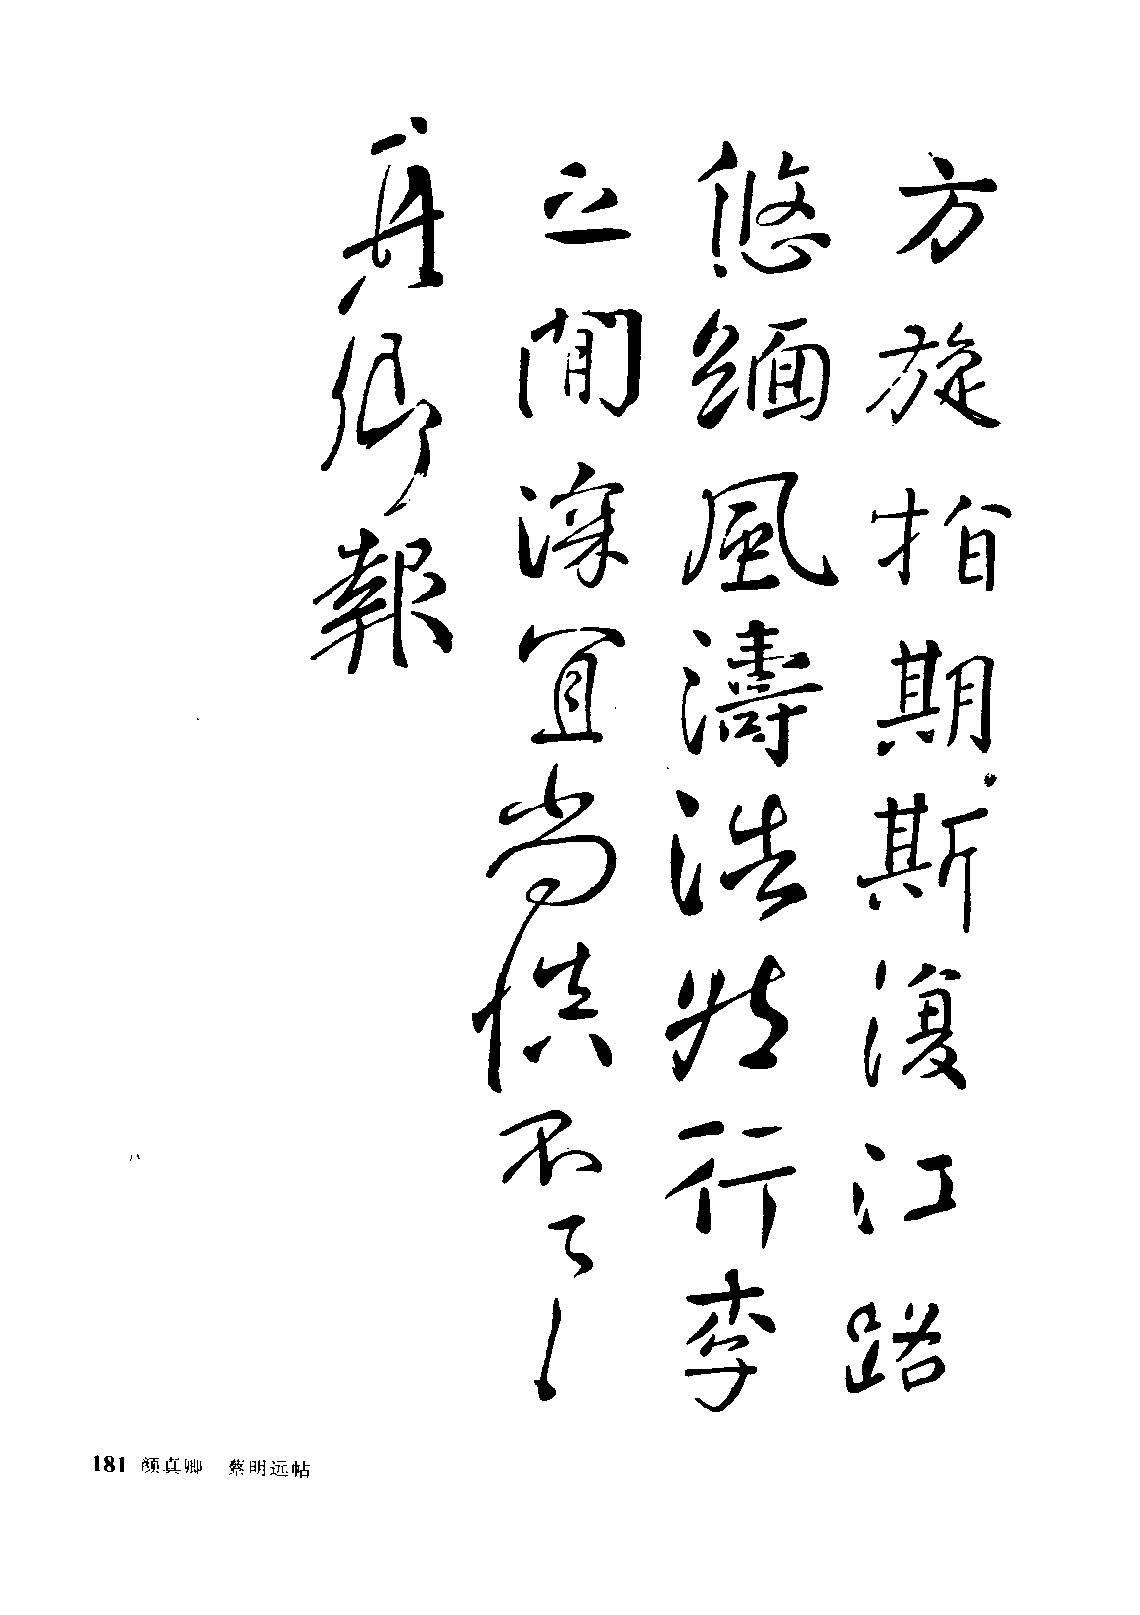 方旋指期斯復江路
悠緬風濤浩然行李
之間深宜尚慎不
真卿報
181 颜真卿 蔡明远帖